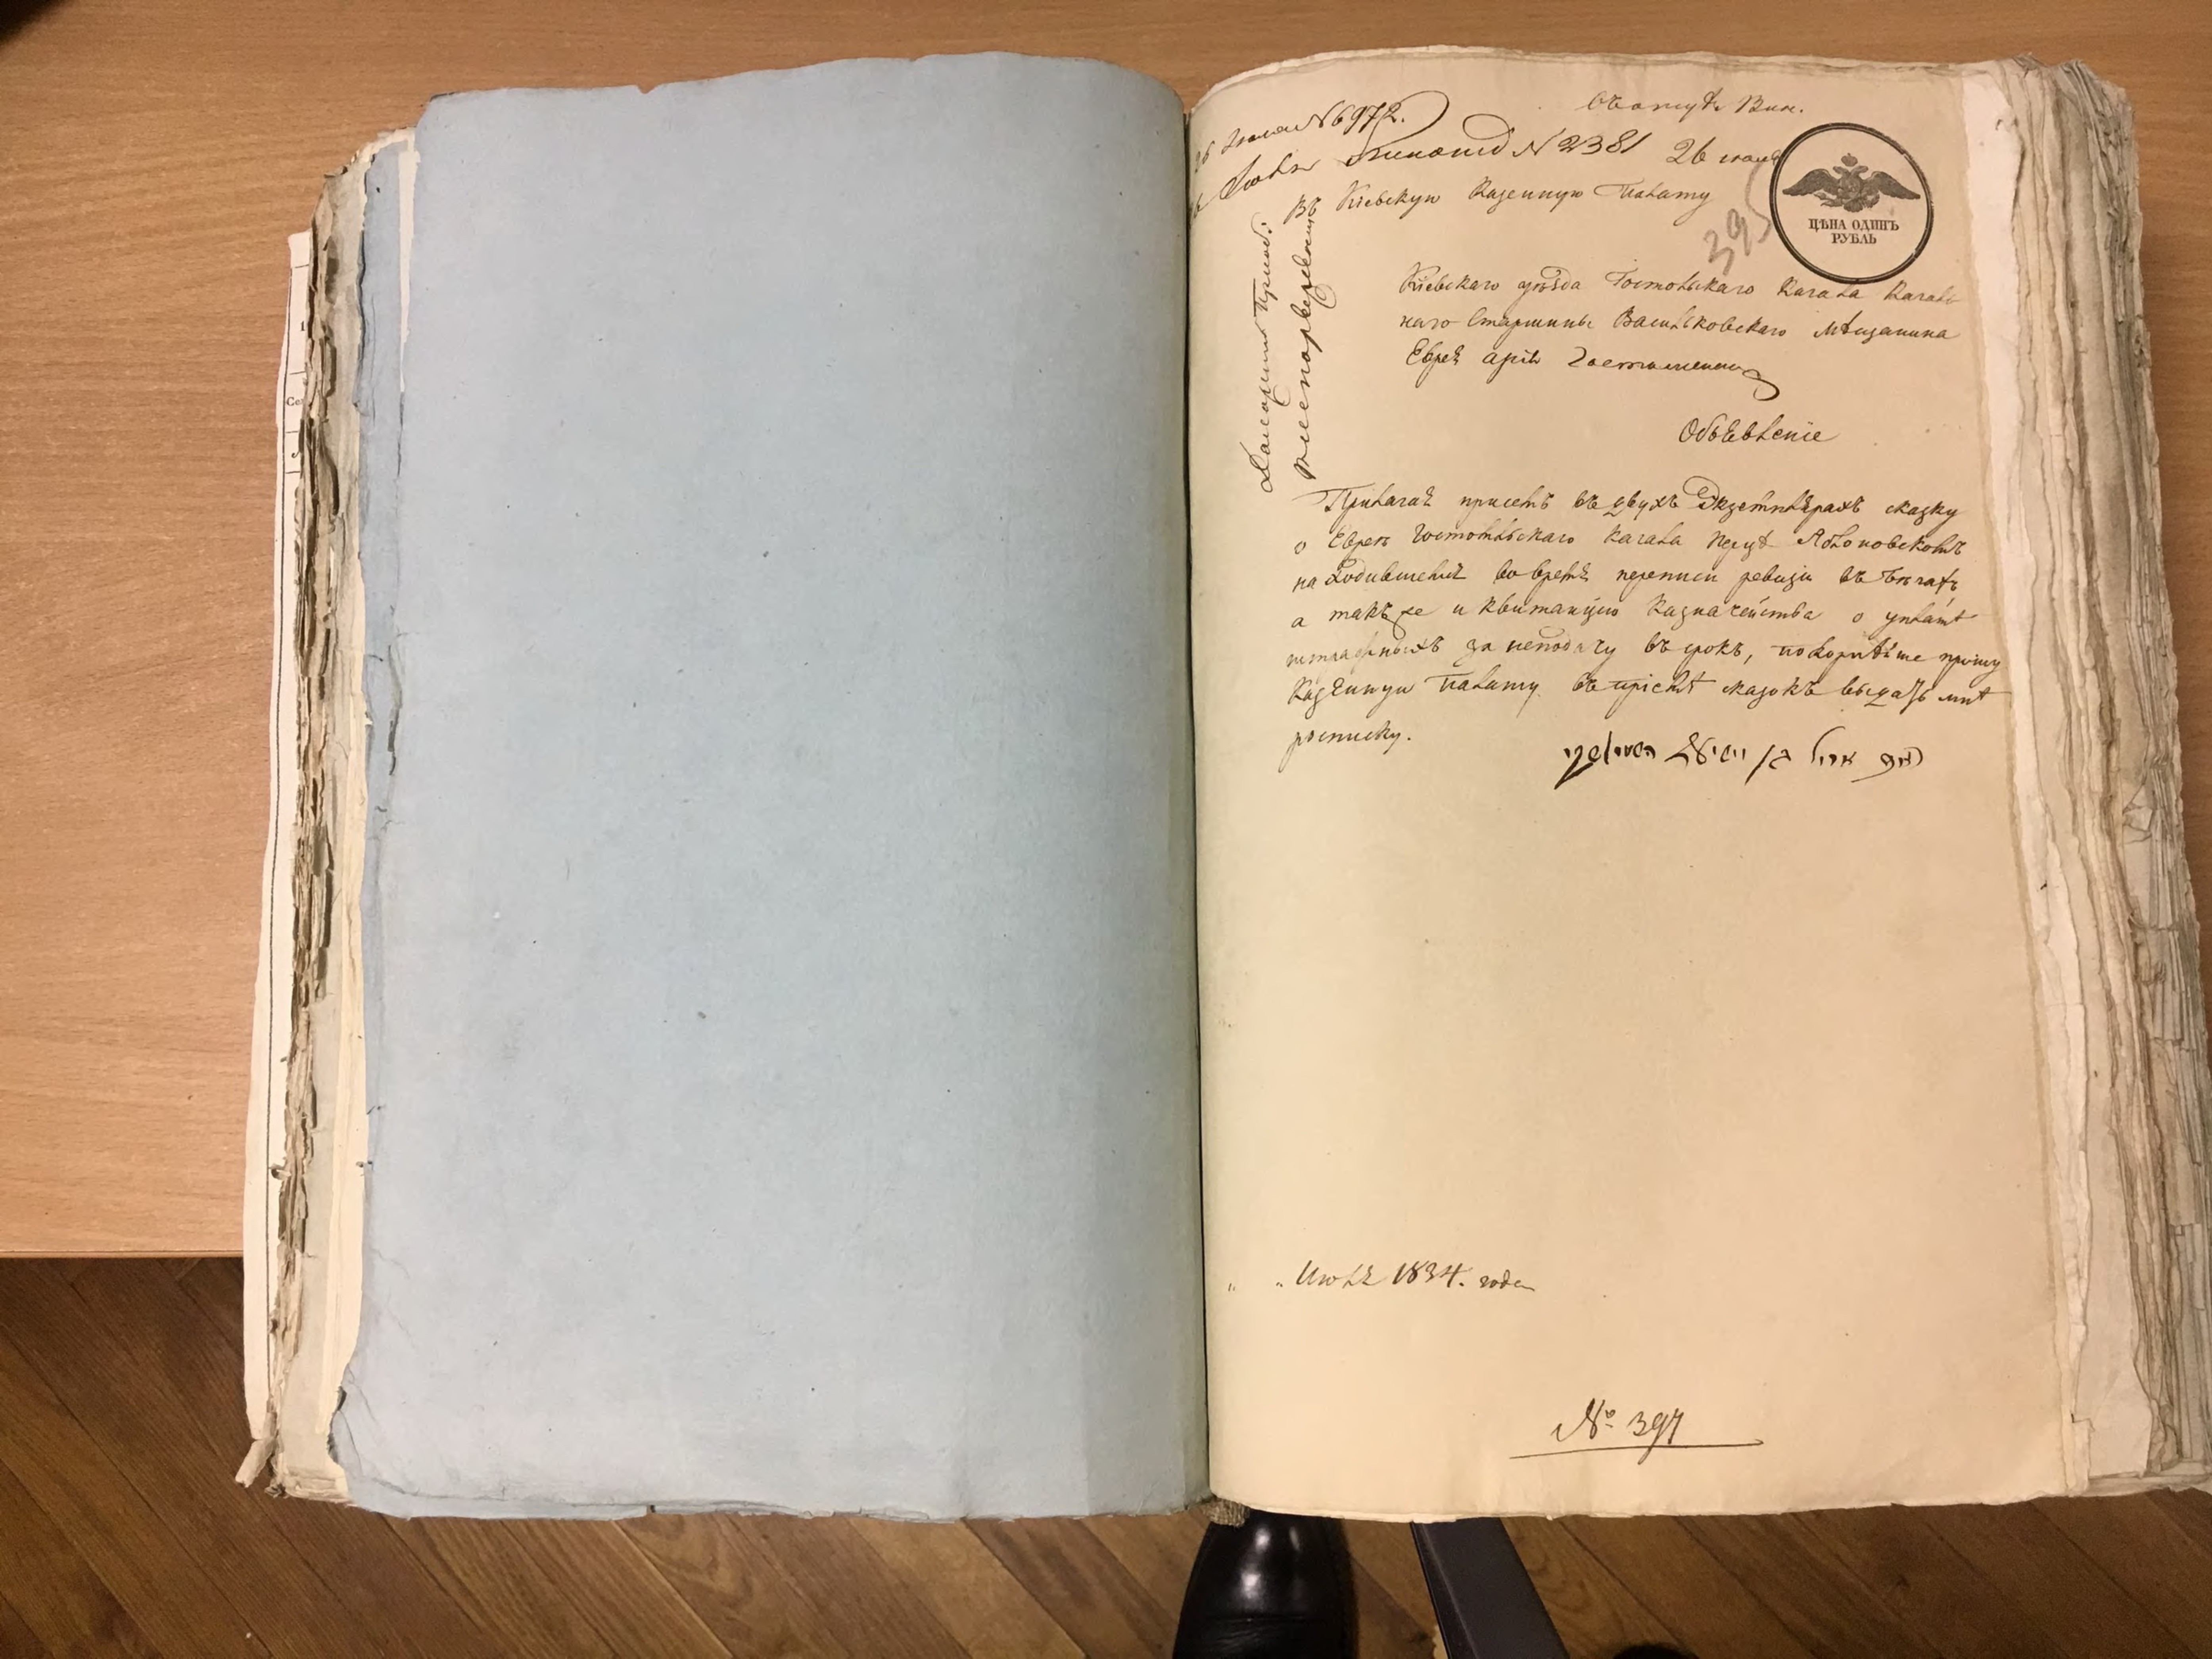 26 Июля № 6972.
въ
№ 2381 26 июля
Въ Кіевскую Казенную Палату
395
ЦѢНА ОДИНЪ
РУБЛЬ
Кіевскаго уѣзда Гостомльскаго Кагала Кагаль
наго Старшины Васильковскаго Мѣщанина
Еврея
Объевленіе
Прилагая присемъ въ двухъ Экземплярахъ сказку
о Еврею Гостомльскаго Кагала Яблоновскомъ
находившемся во время переписи ревизіи въ бѣгахъ
а такъ же и квитанцію Казначейства о уплатѣ
штрафныхъ за неподачу въ срокъ, покорнѣйше прошу
Казенную Палату въ пріемѣ сказокъ выдать мнѣ
росписку.
" " Июля 1834. года
№ 397